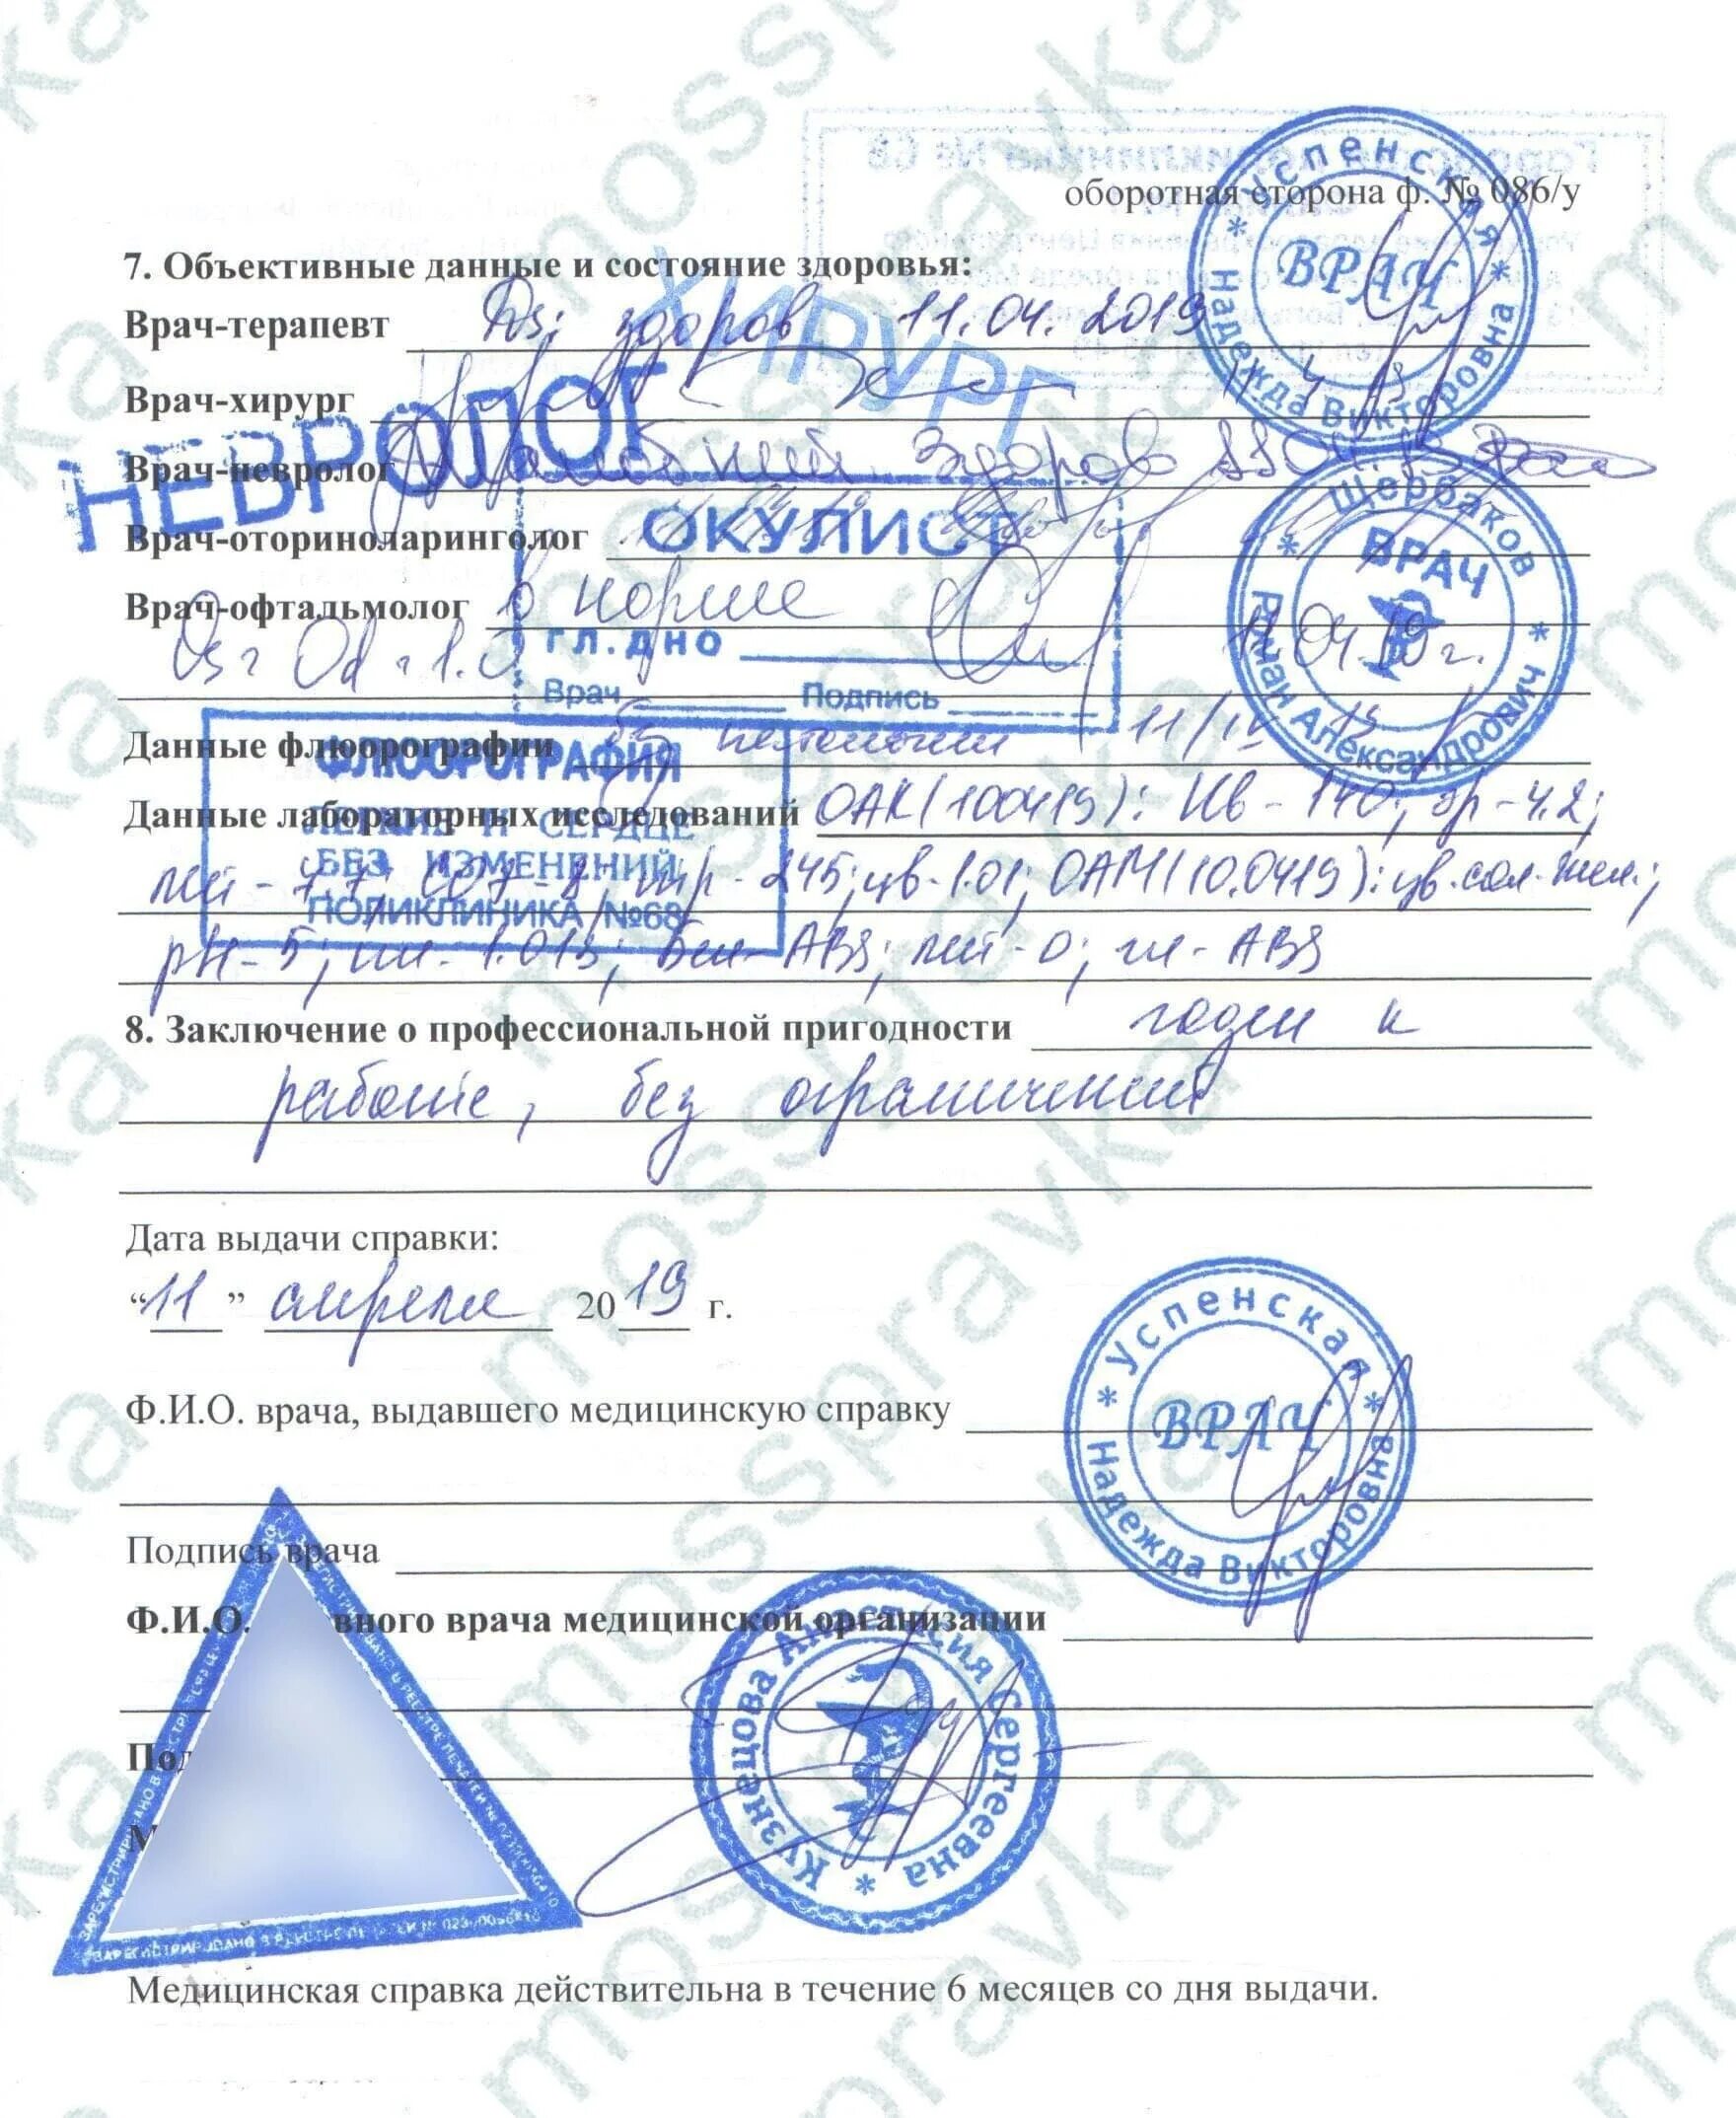 оборотная сторона ф. № 086/у
7. Объективные данные и состояние здоровья:
Врач-терапевт Ds: здоров 11.04.2019
Успенская Надежда Викторовна
ВРАЧ
ХИРУРГ
Врач-хирург
НЕВРОЛОГ
Врач-невролог Здоров
Врач-оториноларинголог
ОКУЛИСТ
Врач-офтальмолог в норме
ГЛ. ДНО
11.04.19 г.
Врач Подпись
Щербаков Роман Александрович
ВРАЧ
Данные флюорографии без патологии 11/IV 19
ФЛЮОРОГРАФИЯ
ЛЕГКИЕ И СЕРДЦЕ
БЕЗ ИЗМЕНЕНИЙ
ПОЛИКЛИНИКА №68
Данные лабораторных исследований ОАК(100419): Нв - 140; эр - 4.2;
лей - 7.7; СОЭ - 8; тр - 245; цв - 1.01; ОАМ(10.0419): цв. сол. жел.;
рН - 5; пл - 1.013; бел - ABS; лей - 0; гл - ABS
8. Заключение о профессиональной пригодности годен к
работе, без ограничений
Дата выдачи справки:
“11” апреля 2019 г.
Ф.И.О. врача, выдавшего медицинскую справку
Успенская Надежда Викторовна
ВРАЧ
Подпись врача
Ф.И.О. вного врача медицинской организации
Кузнецова Анастасия Сергеевна
Под
М
ЗАРЕГИСТРИРОВАНО В РЕЕСТРЕ ПЕЧАТЕЙ №
Медицинская справка действительна в течение 6 месяцев со дня выдачи.
mosspravka